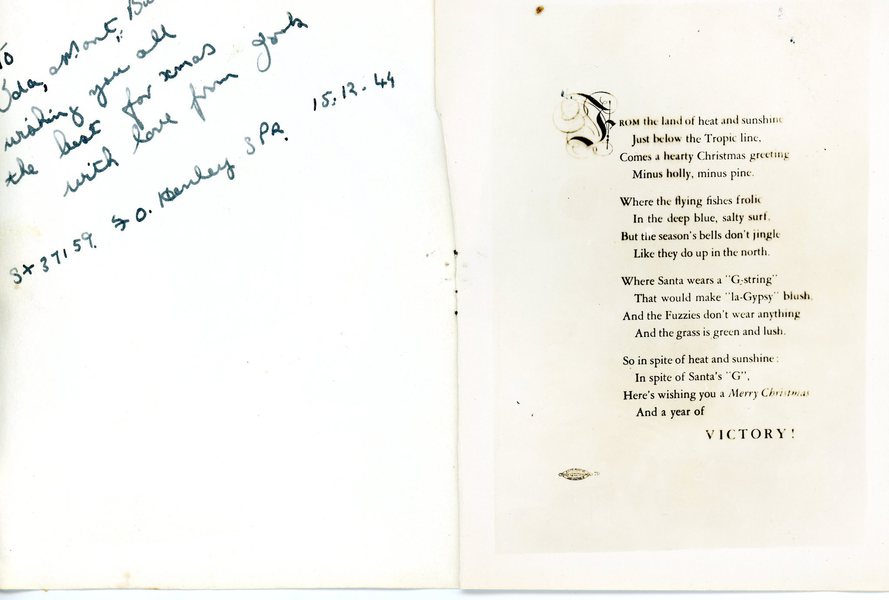 To
wishing you all
the best for xmas
with love from
SX37159. F. O. Henley SPR. 15.12.44
FROM the land of heat and sunshine
Just below the Tropic line,
Comes a hearty Christmas greeting
Minus holly, minus pine.
Where the flying fishes frolic
In the deep blue, salty surf,
But the season's bells don't jingle
Like they do up in the north.
Where Santa wears a "G-string"
That would make "la-Gypsy" blush,
And the Fuzzies don't wear anything
And the grass is green and lush.
So in spite of heat and sunshine :
In spite of Santa's "G",
Here's wishing you a Merry Christmas
And a year of
VICTORY!